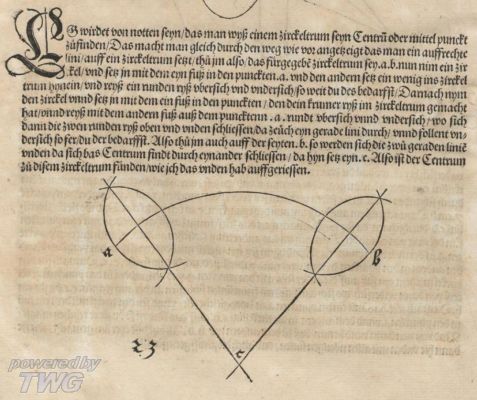 ES wirdet von notten seyn / das man wyß einem zirckeltrum seyn Centrū oder mittel punckt
zůfinden / Das macht man gleich durch den weg wie vor angetzeigt das man ein auffrechte
lini / auff ein zirckeltrum setzt / thů jm also / das fürgegebē zirckeltrum sey .a.b. nun nim ein zir
ckel / vnd setz jn mit dem eyn fuß in den punckten .a. vnd den andern setz ein wenig ins zirckel
trum hynein / vnd reyß ein runden ryß vbersich vnd vndersich / so weit du des bedarffst / Darnach nym
den zirckel vnnd setz jn mit dem ein fuß in den punckten / den dein krumer ryß im zirckeltrum gemacht
hat / vnnd reyß mit dem andern fuß auß dem punckten .a. rundt vbersich vnnd vndersich / wo sich
dann die zwen runden ryß oben vnd vnden schliessen / da zeüch eyn gerade lini durch / vnnd follent vn-
dersich so fer / du der bedarffst. Also thů jm auch auff der seyten .b. so werden sich die zwů geraden liniē
vnden da sich das Centrum findt durch eynander schliessen / da hyn setz eyn .c. Also ist der Centrum
zů disem zirckeltrum fūnden / wie ich das vnden hab auffgeriessen.
a
b
c
23
powered by
TWG